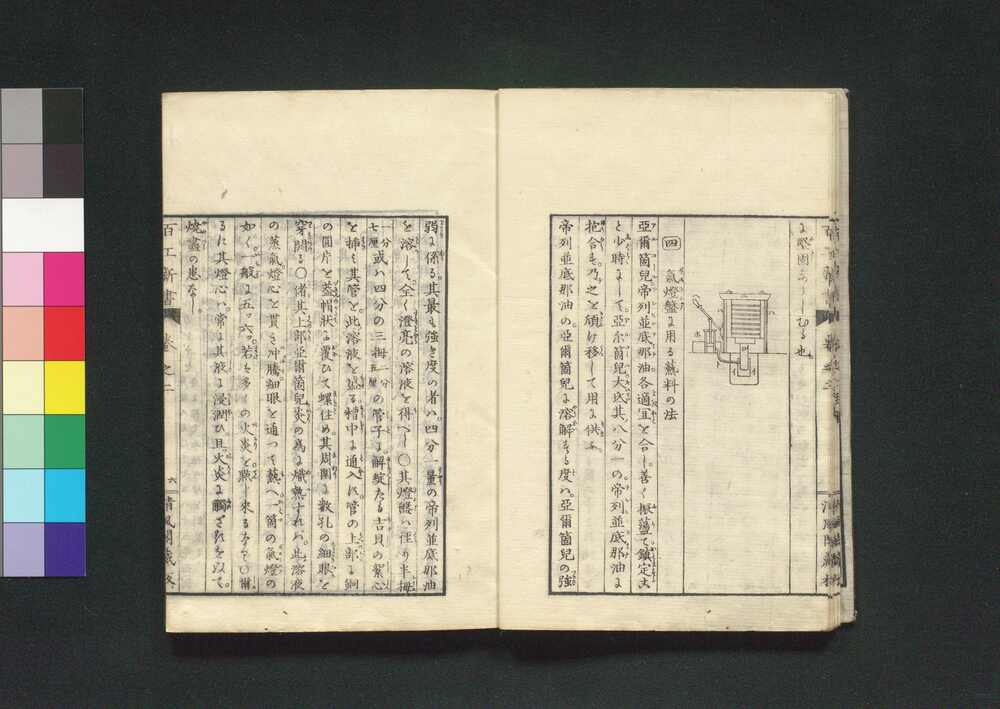 に堅固ならしむる也
四 氣燈盤に用る爇料の法
亞爾箇兒帝列並底那油各適宜を合し善く振蕩て鎮定す
と少時して亞尓箇兒大底其八分一の帝列並底那油に
抱合も乃之を傾け移して用に供ふ
帝列並底那油の亞爾箇兒に溶解する度ハ亞爾箇兒の強
弱に係る其最も強き度の者ハ四分一量の帝列並底那油
を溶して全く澄亮の溶液を得べし〇其燈盞ハ徑り半拇
一分七厘或ハ四分の三拇二分五厘の管子に解綻たる吉貝の紮心
を挿も其管を此溶液を盛る槽中に通入れ管の上部に銅
の圓片を蓋帽狀に覆ひて螺住め其周圍に數孔の細眼を
穿開る〇偖其上部亞爾箇兒炎の為に熾熱すれバ此溶液
の蒸氣燈心を貫き沖騰細眼を通つて爇へ一箇の氣燈の
如く一般に五つ六つ若も多くの火炎を點し來るなり〇爾
るに其燈心ハ常に其液に浸潤ひ且火炎に觸ざるを以て
燒盡の患なし
百工新書 卷之二 六 清風閣藏版